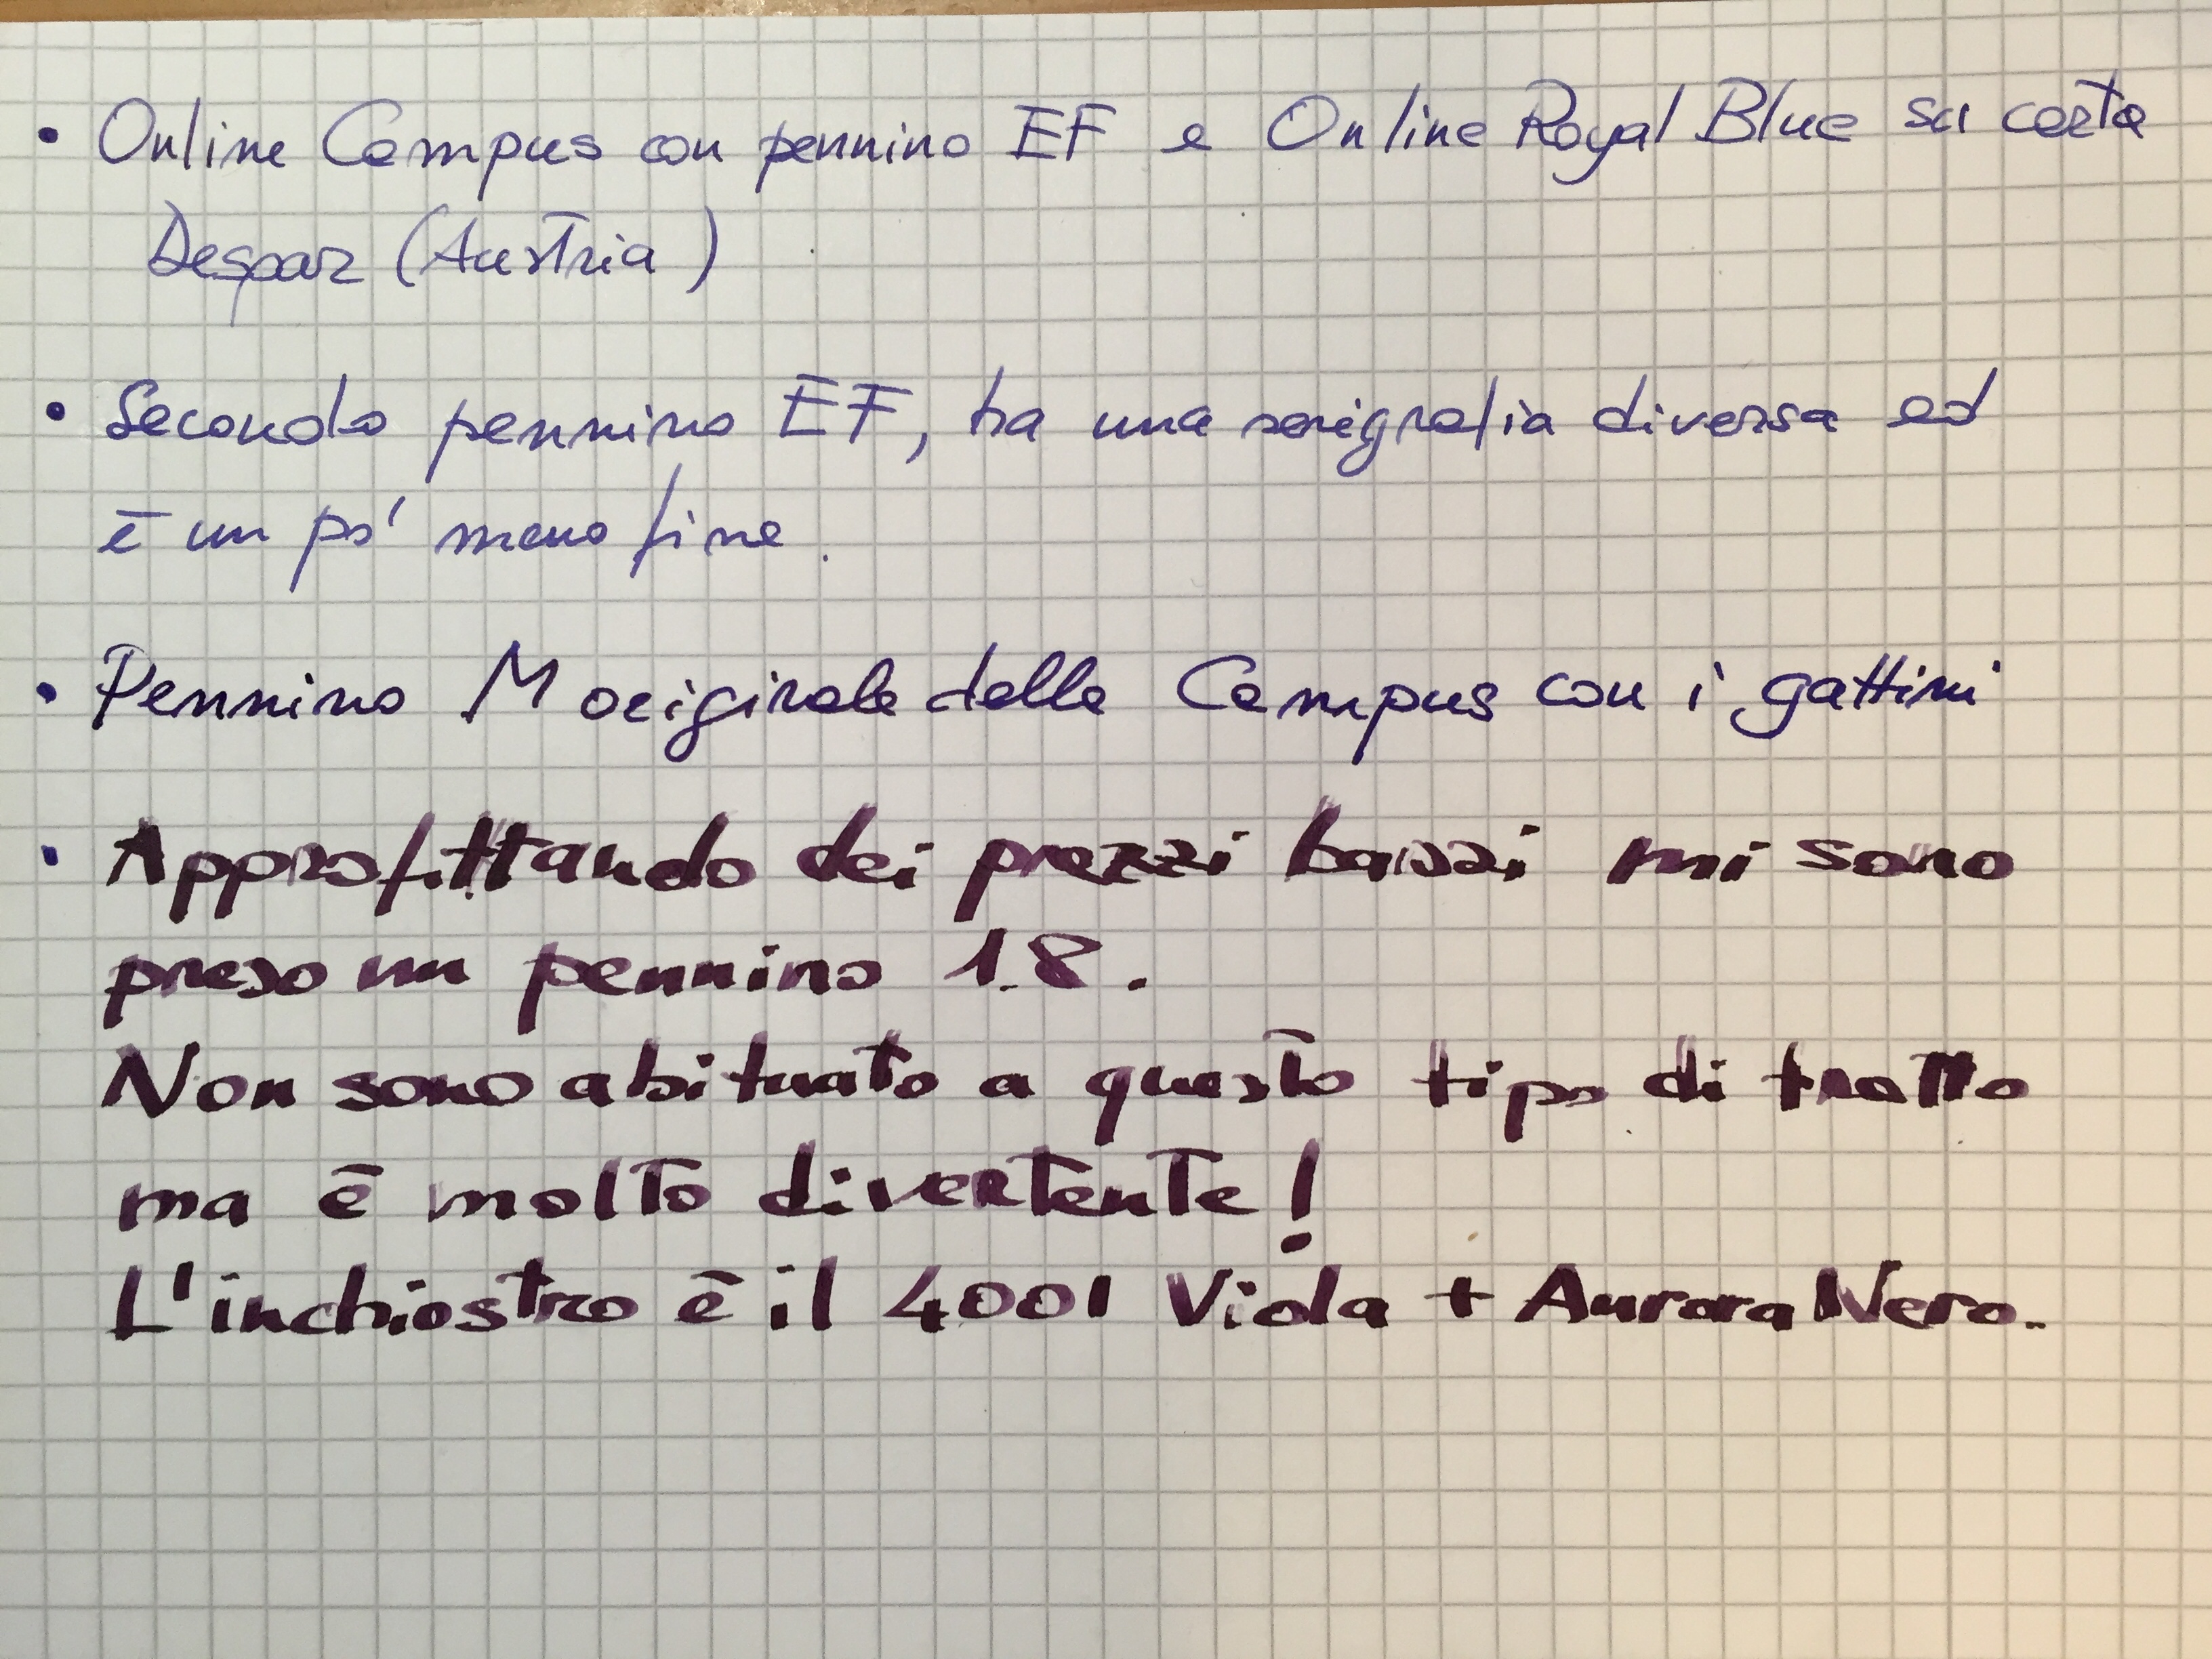 • Online Campus con pennino EF e Online Royal Blue su carta
Despar (Austria)
• Secondo pennino EF, ha una serigrafia diversa ed
è un po' meno fine.
• Pennino M originale delle Campus con i gattini
• Approfittando dei prezzi bassi mi sono
preso un pennino 1.8.
Non sono abituato a questo tipo di tratto
ma è molto divertente!
L'inchiostro è il 4001 Viola + Aurora Nero.